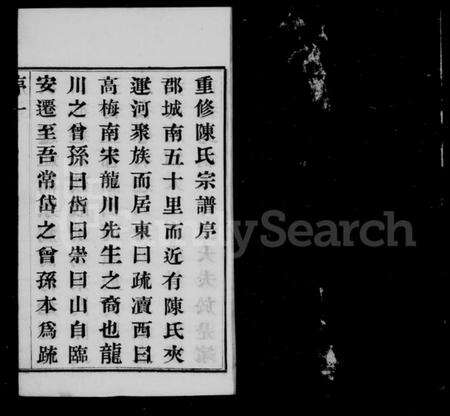 重修陳氏宗譜序
郡城南五十里而近有陳氏夾
運河聚族而居東曰疏瀆西曰
高梅南宋龍川先生之裔也龍
川之曾孫曰岱曰崇曰山自臨
安遷至吾常岱之曾孫本爲疏
序一
MySearch